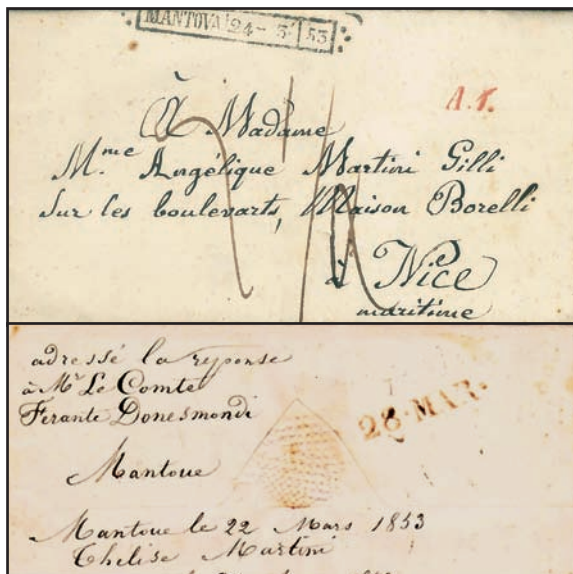 MANTOVA 24-3 53
A.T.
À Madame
M.me Angélique Martini Gilli
Sur les boulevarts, Maison Borelli
à Nice
maritime
adressé la reponse
à Mr Le Comte
Ferante Donesmondi
28·MAR·
Mantoue
Mantoue le 22 Mars 1853
Thelise Martini